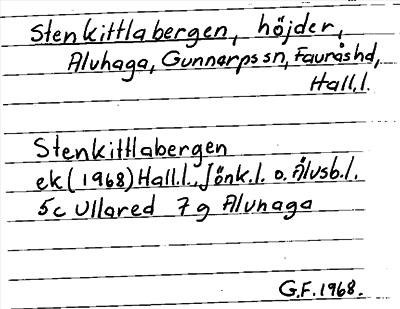 Stenkittlabergen, höjder,
Aluhaga, Gunnarps sn, Fauråshd,
Hall.l.
Stenkittlabergen
ek (1968) Hall.l., Jönk.l. o. Älvsb.l.
5c Ullared 7g Aluhaga
G.F. 1968.